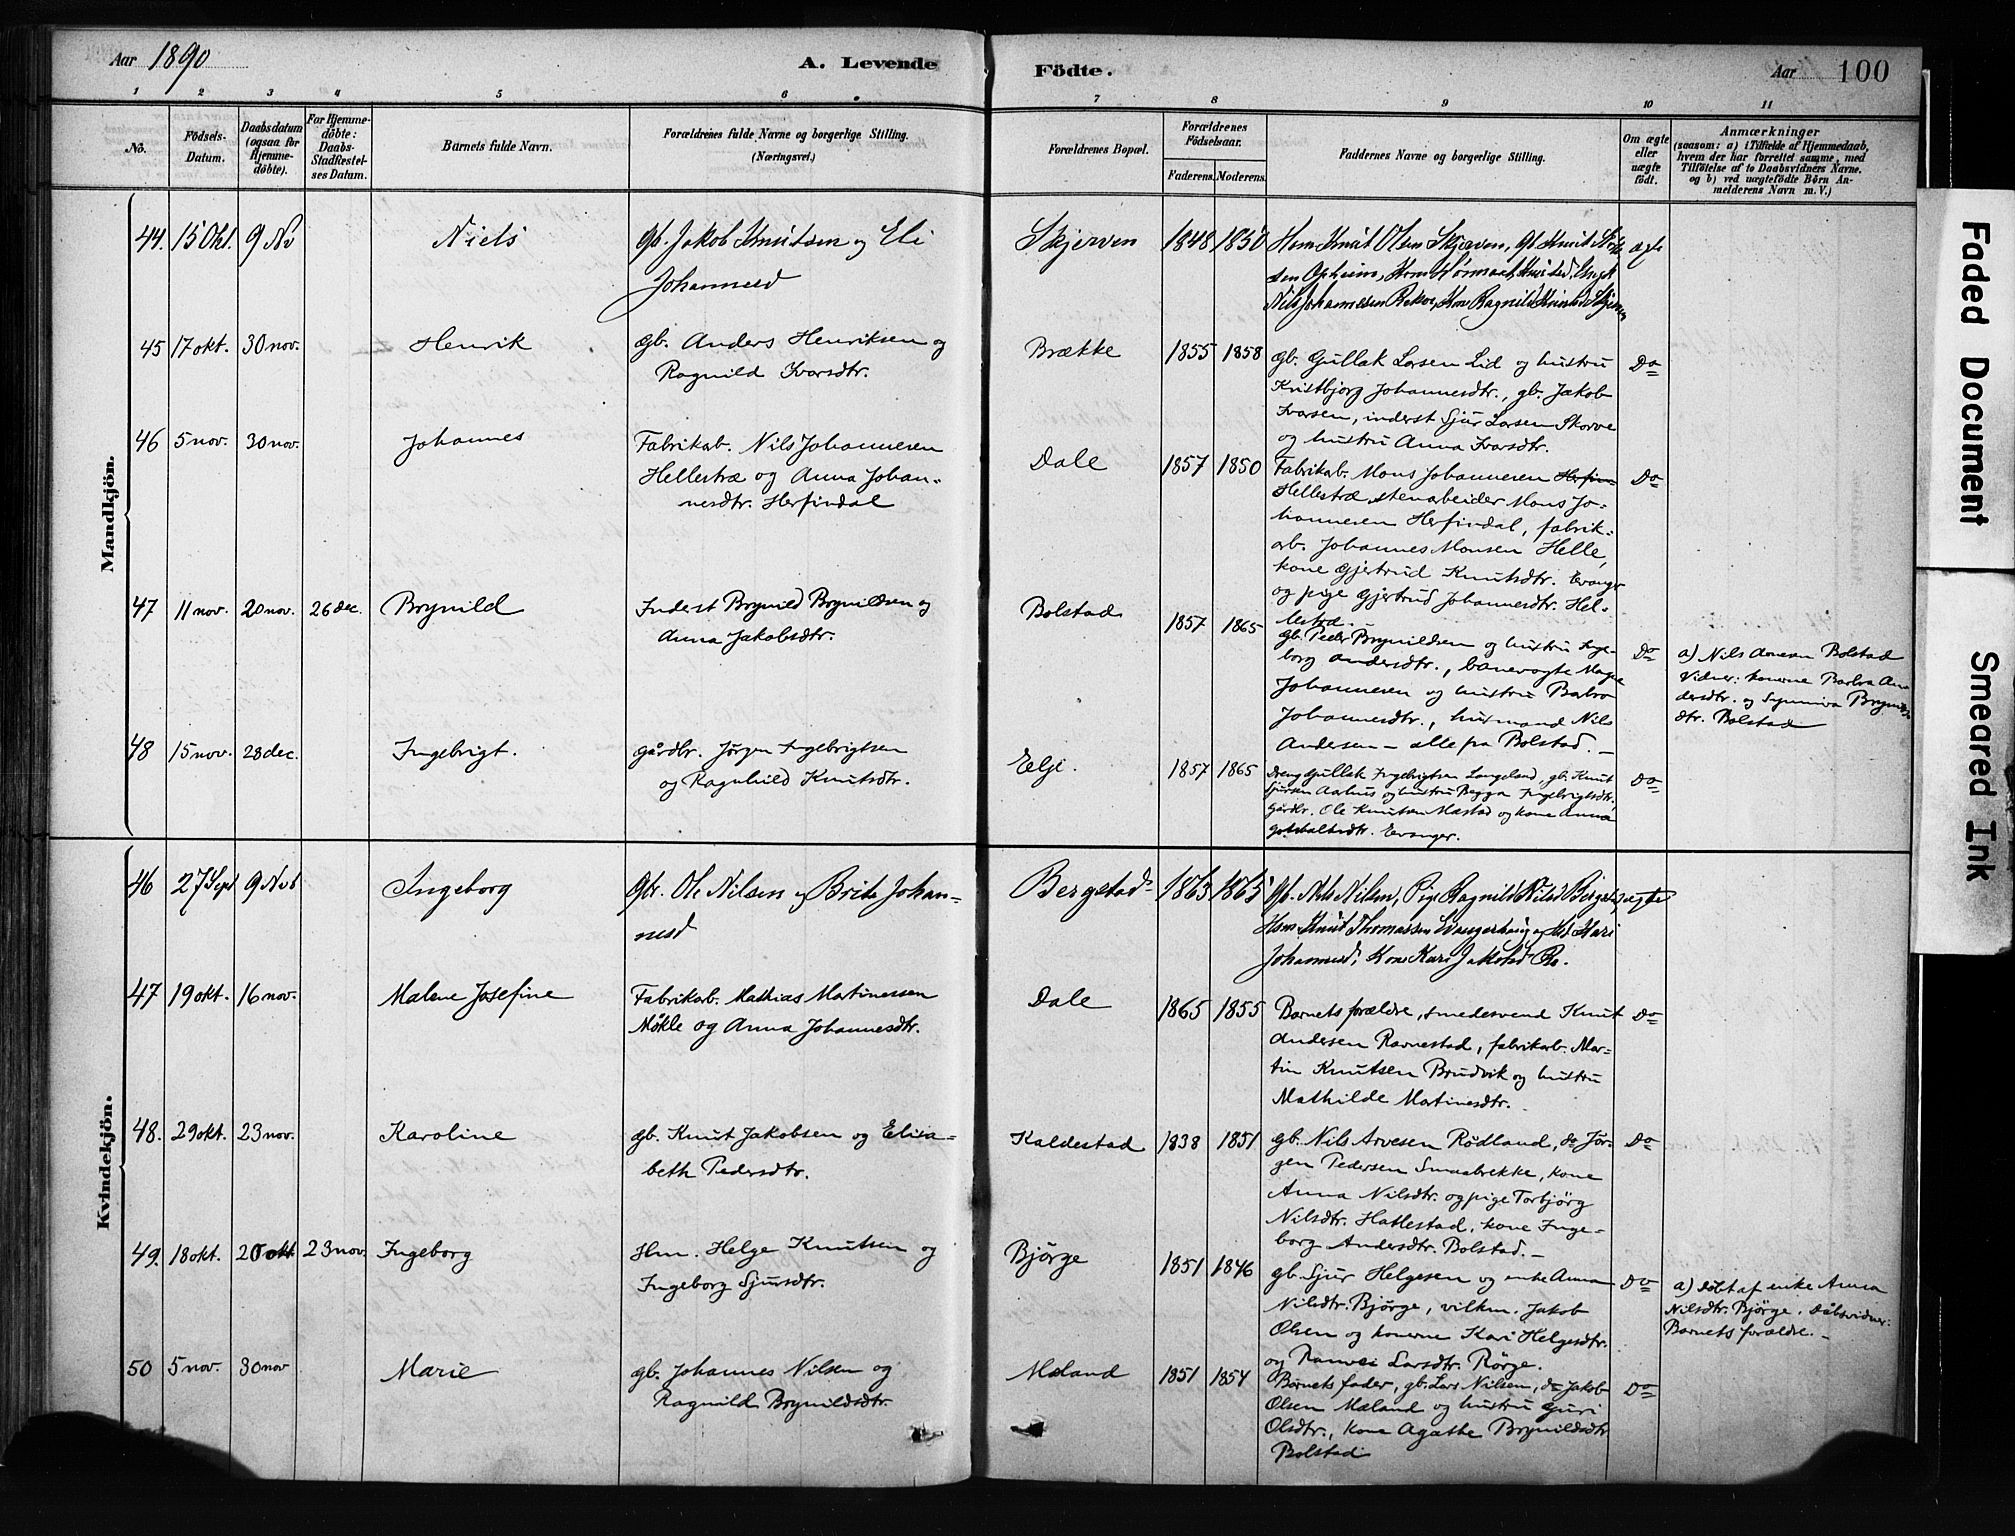 Aar 1890
A. Levende
Födte.
Aar
100
1 2 3 4 5 6 7 8 9 10 11
No.
Födsels-
Datum.
Daabsdatum
(ogsaa for
Hjemme-
döbte).
For Hjemme-
döbte:
Daabs-
Stadfestel-
ses Datum.
Barnets fulde Navn.
Forældrenes fulde Navne og borgerlige Stilling.
(Næringsvei.)
Forældrenes Bopæl.
Forældrenes
Födselsaar.
Faderens. Moderens.
Faddernes Navne og borgerlige Stilling.
Om ægte
eller
uægte
födt.
Anmærkninger
(saasom: a) i Tilfælde af Hjemmedaab,
hvem der har forrettet samme, med
Tilföielse af to Daabsvidners Navne.
og b) ved uægtefödte Börn An-
melderens Navn m. V.)
Mandkjön.
44. 15 Okt. 9 Nv
Niels
gb. Jakob Knutsen og Eli
Johannesd
Skjerven
1848 1850
Hsm Knut Olsen Skjerven, gb. Knut
sen Opheim,
Nils Johannesen Kone Ragnild Knutsd
ægte
45 17 okt. 30 nov.
Henrik
gb. Anders Henriksen og
Ragnild Ivarsdtr.
Brække
1855 1858
gb. Gullak Larsen Lid og hustru
Kristbjorg Johannesdtr., gb. Jakob
Ivarsen, inderst Sjur Larsen Skorve
og hustru Anna Ivarsdtr.
Do
46 5 nov. 30 nov.
Johannes
Fabrikab. Nils Johannesen
Hellestræ og Anna Johan-
nesdtr. Herfindal
Dale
1857 1850
Fabrikarb. Mons Johannesen Herfin
Hellestræ, stenarbeider Mons Jo-
hannesen Herfindal, fabrik-
arb. Johannes Monsen Helle,
kone Gjertrud Knutsdtr. Evanger
og pige Gjertrud Johannesdtr. Hel-
lestræ.
Do
47 11 nov. 20 nov. 26 dec.
Brynild
Inderst Brynild Brynildsen og
Anna Jakobsdtr.
Bolstad
1857 1865
gb. Peder Brynildsen og hustru Inge-
borg Andersdtr., banevogte Magne
Johannesen og hustru Babro
Johannesdtr., husmand Nils
Andersen – alle fra Bolstad. –
Do
a) Nils Arnesen Bolstad
Vidner: konerne Barbra An-
dersdtr. og Synniva Brynilds
dtr. Bolstad
48 15 nov. 28 dec.
Ingebrigt.
gårdbr. Jørgen Ingebrigtsen
og Ragnhild Knutsdtr.
Elje.
1857 1865
Dreng Gullak Ingebrigtsen Langeland, gb. Knut
Sjursen Aarhus og hustru Begga Ingebrigtsdtr.,
gårdbr. Ole Knutsen Mæstad og kone Anna
Evanger.
Do
Kvindekjön.
46 27 Sept 9 Nvb
Ingeborg
Gbr. Ole Nilsen og Brita Johan-
nesd
Bergstad
1863 1865
Gb. Nils Nilsen, Pige Ragnild Nilsd Bergstad,
Hsm Knud Thomassen Evangerhaug og Kari
Johannesd, Kone Kari Jakobsd
ægte
47 19 okt. 16 nov.
Malene Josefine
Fabrikarb. Mathias Martinussen
Møkle og Anna Johannesdtr.
Dale
1865 1855
Barnets forældre, smedesvend Knut
Andersen Ravnestad, fabrikarb. Mar-
tin Knutsen Brudvik og hustru
Mathilde Martinesdtr.
Do
48. 29 okt. 23 nov.
Karoline
gb. Knut Jakobsen og Elisa-
beth Pedersdtr.
Kaldestad
1838 1851
gb. Nils Arvesen Rødland, do Jør-
gen Pedersen Smaabrekke, kone
Anna Nilsdtr. og pige Torbjörg
Nilsdtr. Hatlestad, kone Inge-
borg Andersdtr. Bolstad. –
Do
49. 18 okt. 20 okt. 23 nov.
Ingeborg
Hm. Helge Knutsen og
Ingeborg Sjursdtr.
Bjørge
1851 1846
gb. Sjur Helgesen og enke Anna
Nilsdtr. Bjørge, vilkm. Jakob
Olsen og konerne Kari Helgesdtr.
og Ranvei Larsdtr. Rørge.
Do
a) døbt af enke Anna
Nilsdtr. Bjørge. Dåbsvidner:
Barnets forældre. –
50 5 nov. 30 nov
Marie
gb. Johannes Nilsen og
Ragnild Brynildsdtr.
Mæland
1851 1854
Barnets fader, gb. Lars Nilsen, do Jakob
Olsen Mæland og hustru Guri
Olsdtr., kone Agathe Brynildsdtr.
Bolstad
Do
Faded Document
Smeared Ink